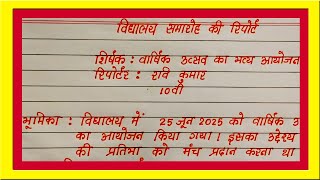 विद्यालय समारोह की रिपोर्ट
शिर्षक : वार्षिक उत्सव का भव्य आयोजन
रिपोर्टर : रवि कुमार
10वी
भूमिका : विद्यालय में 25 जून 2025 को वार्षिक उ
का आयोजन किया गया। इसका उद्देश्य
की प्रतिभा को मंच प्रदान करना था